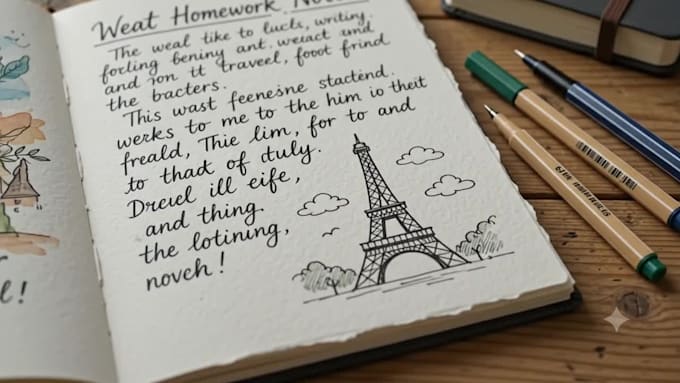 Weat Homework
The weal tike to lucls, writing.
forling beniny ant. weract and
and ion tt traveel, foot frind
the bacters.
This wast feenesne stactend.
werks to me to the him io theit
freald, Thie lim, for to and
to thad of ctuly.
Drecel ill eife,
and thing.
the lotining,
noveh !
!